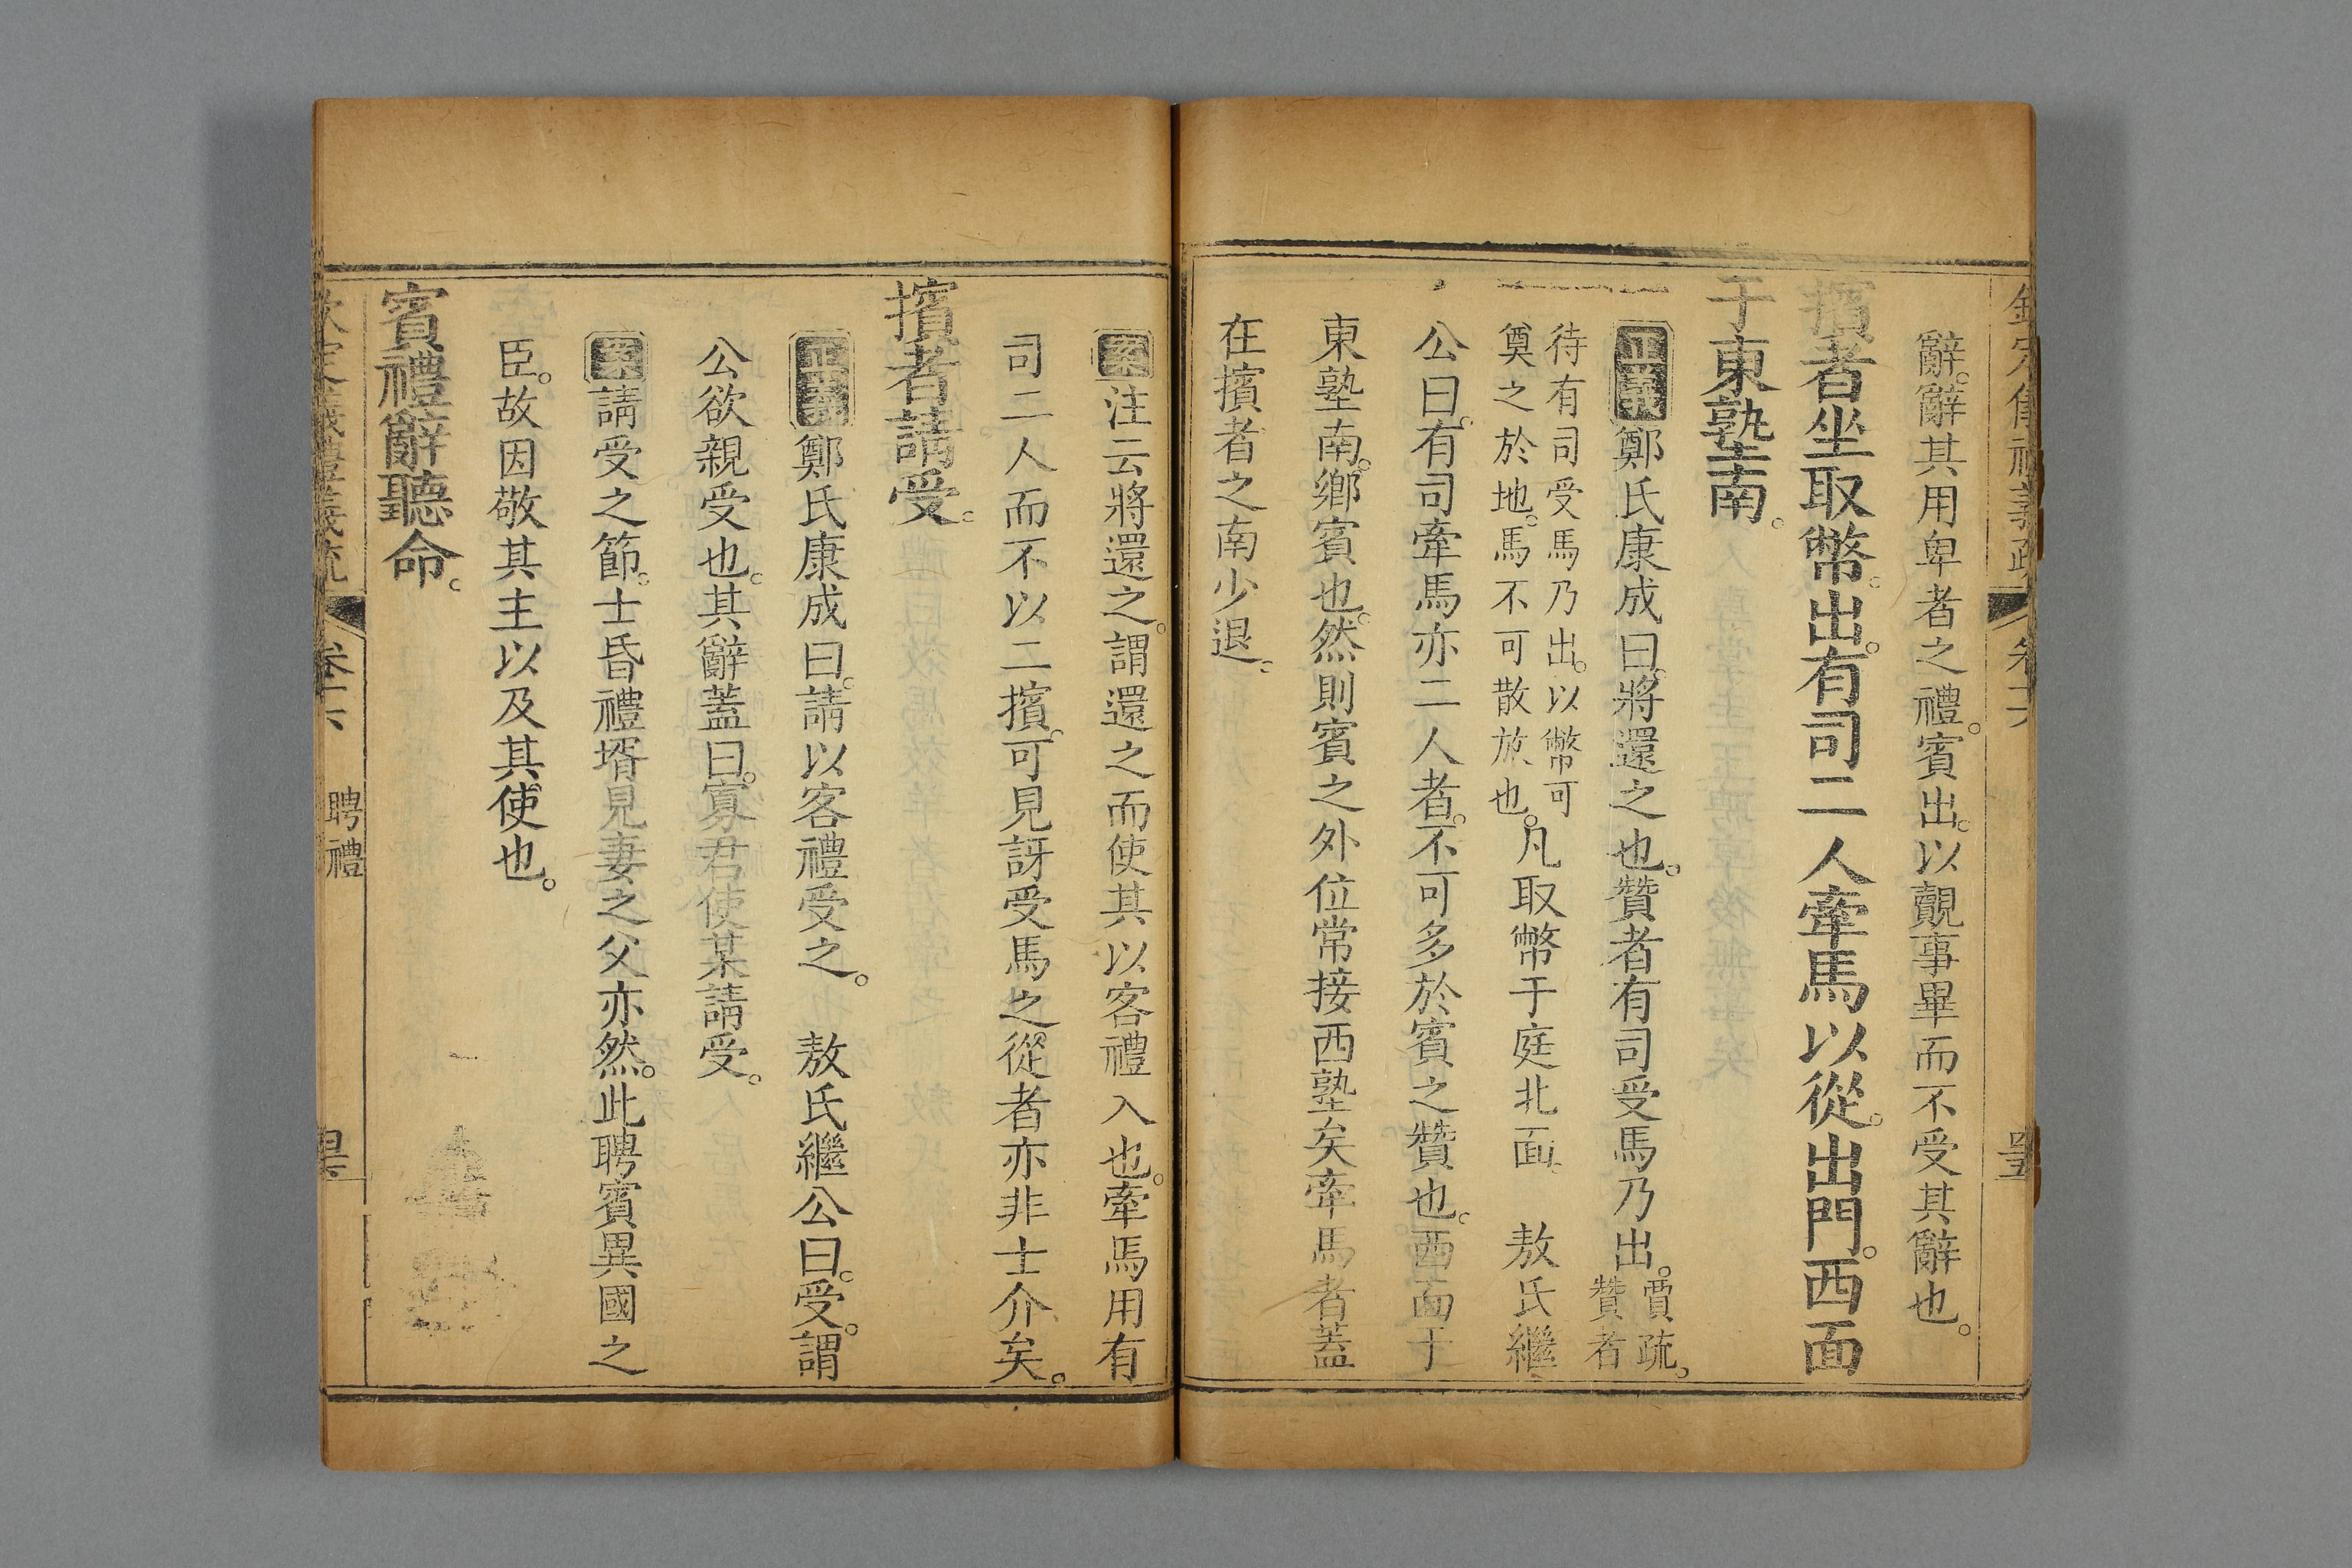 欽定儀禮義疏 卷十六
辭。辭其用卑者之禮。賓出。以覿事畢而不受其辭也。
擯者坐取幣。出。有司二人牽馬以從。出門。西面
于東塾南。
正義鄭氏康成曰。將還之也。贊者有司受馬乃出。賈疏。贊者
待有司受馬乃出。以幣可奠之於地。馬不可散放也。凡取幣于庭北面。 敖氏繼
公曰。有司牽馬亦二人者。不可多於賓之贊也。西面于
東塾南。鄉賓也。然則賓之外位常接西塾矣牽馬者蓋
在擯者之南少退。
案注云將還之。謂還之而使其以客禮入也。牽馬用有
司二人而不以二擯。可見訝受馬之從者亦非士介矣。
擯者請受。
正義鄭氏康成曰。請以客禮受之。 敖氏繼公曰。受。謂
公欲親受也。其辭蓋曰。寡君使某請受。
案請受之節。士昏禮壻見妻之父亦然。此聘賓異國之
臣。故因敬其主以及其使也。
賓禮辭聽命。
欽定儀禮義疏 卷十六 聘禮